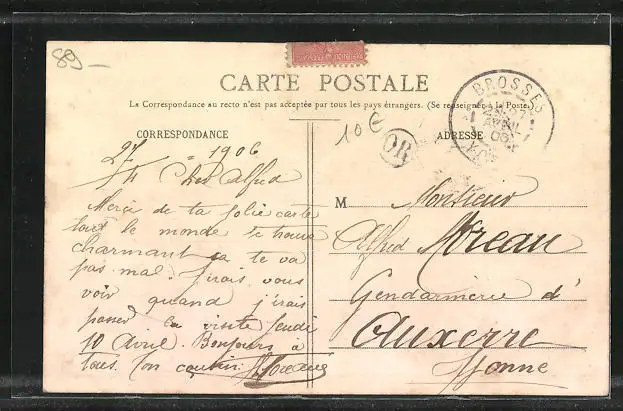 89
CARTE POSTALE
La Correspondance au recto n'est pas acceptée par tous les pays étrangers. (Se renseigner à la Poste)
CORRESPONDANCE
ADRESSE
BROSSES
AVRIL
06
YONNE
10 c
OR
27/4 1906
Cher Alfred
Merci de ta jolie carte
tout le monde te trouve
charmant ça te va
pas mal. J'irais vous
voir quand j'irais
passer la visite jeudi
10 Avril. Bonjours à
tous. Ton cousin Moreau
M Monsieur
Alfred Moreau
Gendarmerie d'
Auxerre
Yonne